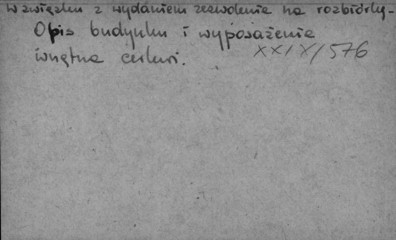 w związku z wydaniem zezwolenia na rozbiórkę.
Opis budynku i wyposażenie
wnętrza cerkwi. XXIX/576